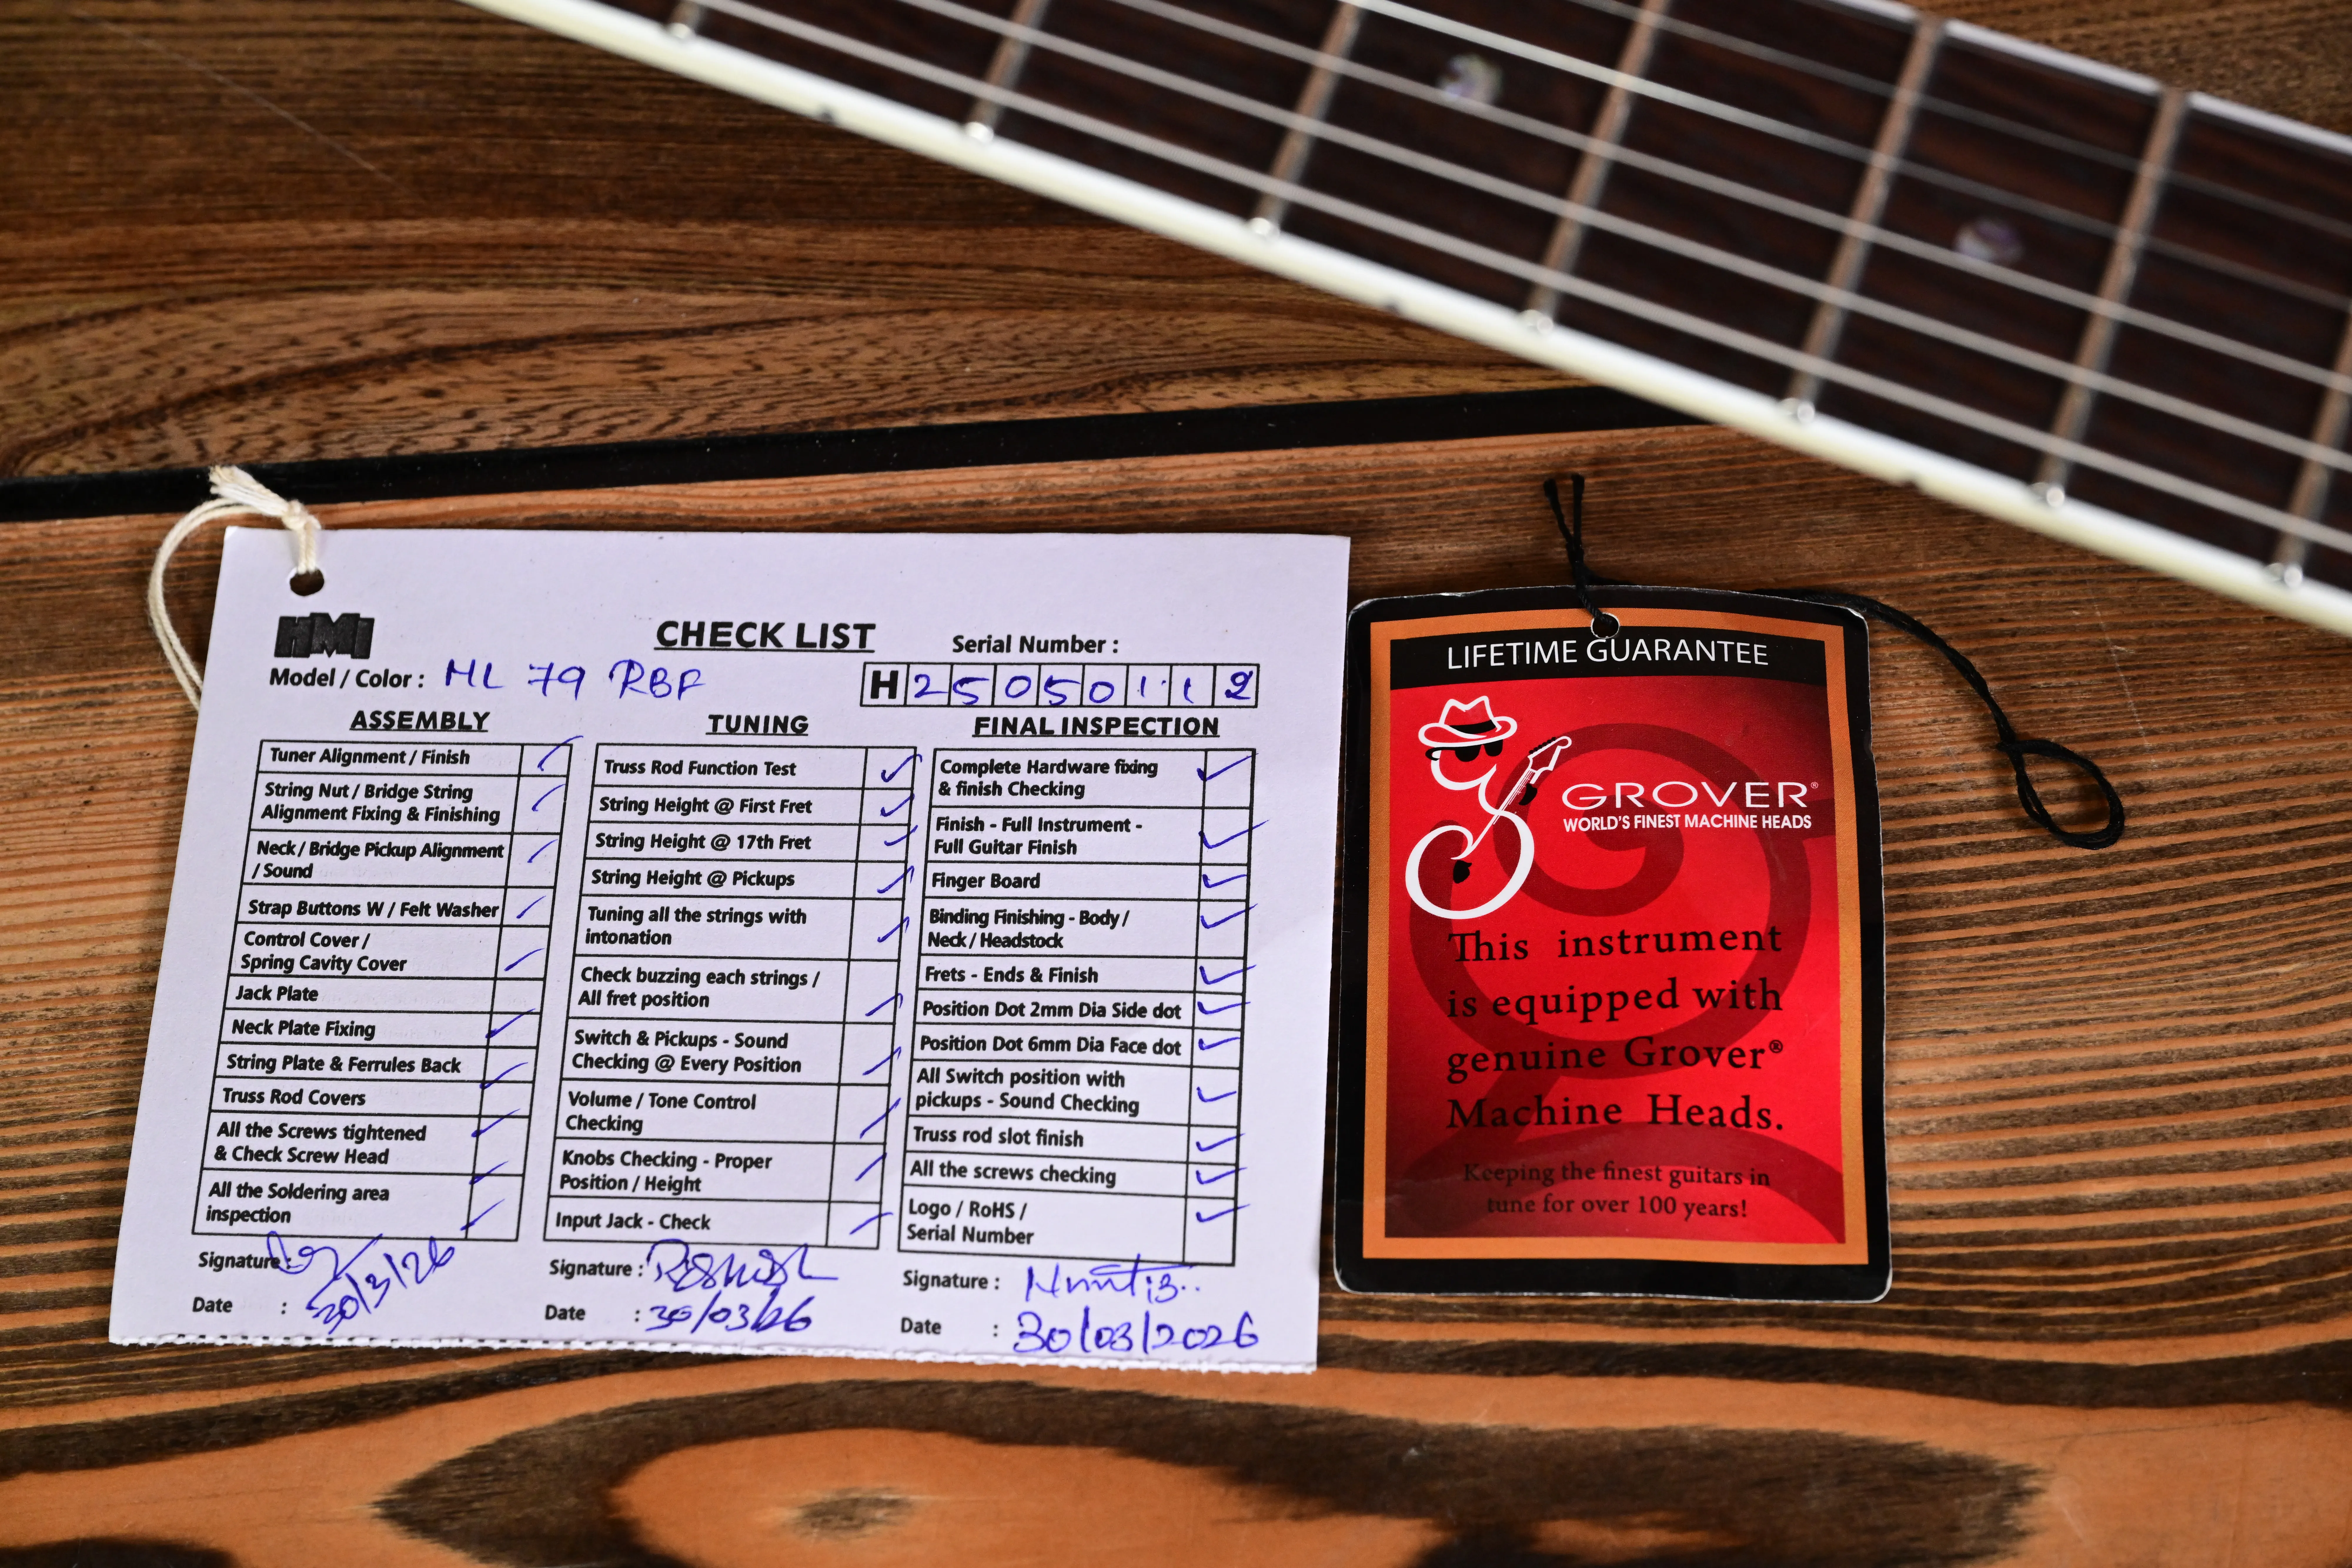 HMI
CHECK LIST
Serial Number :
Model / Color : HL 79 RBF
H 2 5 0 5 0 1 1 2
ASSEMBLY
Tuner Alignment / Finish ✓
String Nut / Bridge String
Alignment Fixing & Finishing ✓
Neck / Bridge Pickup Alignment
/ Sound ✓
Strap Buttons W / Felt Washer ✓
Control Cover /
Spring Cavity Cover ✓
Jack Plate
Neck Plate Fixing ✓
String Plate & Ferrules Back ✓
Truss Rod Covers ✓
All the Screws tightened
& Check Screw Head ✓
All the Soldering area
inspection ✓
Signature :
Date : 30/3/26
TUNING
Truss Rod Function Test ✓
String Height @ First Fret ✓
String Height @ 17th Fret ✓
String Height @ Pickups ✓
Tuning all the strings with
intonation ✓
Check buzzing each strings /
All fret position ✓
Switch & Pickups - Sound
Checking @ Every Position ✓
Volume / Tone Control
Checking ✓
Knobs Checking - Proper
Position / Height ✓
Input Jack - Check ✓
Signature :
Date : 30/03/26
FINAL INSPECTION
Complete Hardware fixing
& finish Checking ✓
Finish - Full Instrument -
Full Guitar Finish ✓
Finger Board ✓
Binding Finishing - Body /
Neck / Headstock ✓
Frets - Ends & Finish ✓
Position Dot 2mm Dia Side dot ✓
Position Dot 6mm Dia Face dot ✓
All Switch position with
pickups - Sound Checking ✓
Truss rod slot finish ✓
All the screws checking ✓
Logo / RoHS /
Serial Number ✓
Signature :
Date : 30/03/2026
LIFETIME GUARANTEE
GROVER®
WORLD'S FINEST MACHINE HEADS
This instrument
is equipped with
genuine Grover®
Machine Heads.
Keeping the finest guitars in
tune for over 100 years!